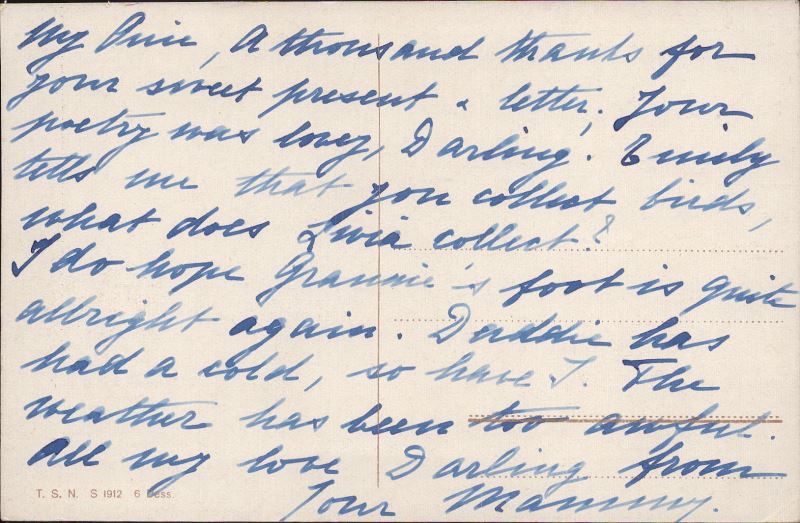 My Puie, A thousand thanks for
your sweet present & letter, Your
poetry was lovey, Darling. Emily
tells me that you collect birds,
what does Livia collect?
I do hope Grannie's foot is quite
allright again. Daddie has
had a cold, so have I. The
weather has been too awful.
All my love Darling from
Your Mammy.
T. S. N. S 1912 6 Dess.